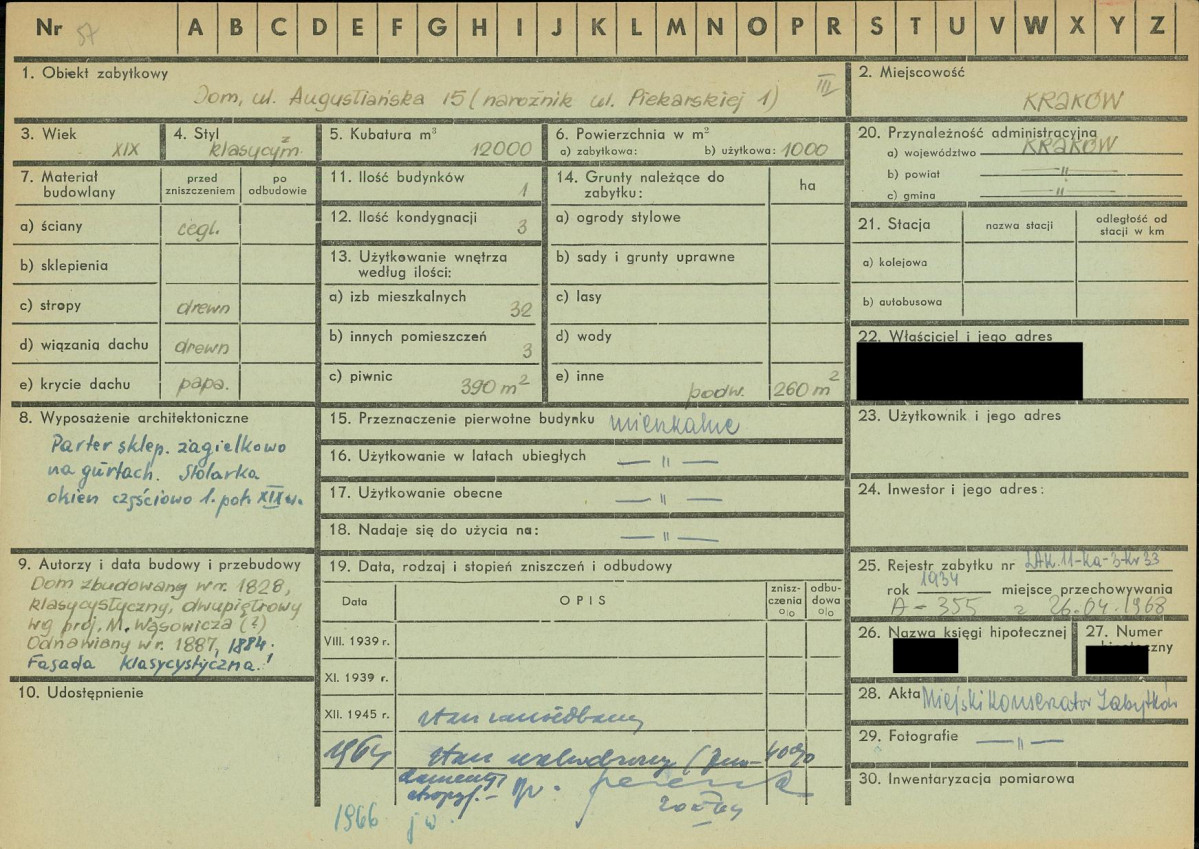 Nr 57 A B C D E F G H I J K L M N O P R S T U V W X Y Z
1. Obiekt zabytkowy
Dom, ul. Augustiańska 15 (narożnik ul. Piekarskiej 1) III
2. Miejscowość
KRAKÓW
3. Wiek
XIX
4. Styl
klasycyzm
5. Kubatura m³
12000
6. Powierzchnia w m²
a) zabytkowa: b) użytkowa: 1000
20. Przynależność administracyjna
a) województwo KRAKÓW
b) powiat —"—
c) gmina —"—
7. Materiał budowlany
przed zniszczeniem
po odbudowie
a) ściany cegl.
b) sklepienia
c) stropy drewn
d) wiązania dachu drewn
e) krycie dachu papa.
11. Ilość budynków 1
12. Ilość kondygnacji 3
13. Użytkowanie wnętrza
według ilości:
a) izb mieszkalnych 32
b) innych pomieszczeń 3
c) piwnic 390 m²
14. Grunty należące do
zabytku: ha
a) ogrody stylowe
b) sady i grunty uprawne
c) lasy
d) wody
e) inne podw. 260 m²
21. Stacja
nazwa stacji
odległość od
stacji w km
a) kolejowa
b) autobusowa
22. Właściciel i jego adres
8. Wyposażenie architektoniczne
Parter sklep. żagielkowo
na gurtach. Stolarka
okien częściowo 1. poł. XIX w.
15. Przeznaczenie pierwotne budynku mieszkalne
16. Użytkowanie w latach ubiegłych —"—
17. Użytkowanie obecne —"—
18. Nadaje się do użycia na: —"—
23. Użytkownik i jego adres
24. Inwestor i jego adres:
9. Autorzy i data budowy i przebudowy
Dom zbudowany w r. 1828,
klasycystyczny, dwupiętrowy
wg proj. M. Wąsowicza (?)
Odnawiany w r. 1887, 1884.
Fasada klasycystyczna.
10. Udostępnienie
19. Data, rodzaj i stopień zniszczeń i odbudowy
Data
OPIS
znisz-
czenia
%
odbu-
dowa
%
VIII. 1939 r.
XI. 1939 r.
XII. 1945 r. stan zaniedbany
1964 stan 40%
1966 jw.
25. Rejestr zabytku nr
rok 1934 miejsce przechowywania
A-355 z 26.04.1968
26. Nazwa księgi hipotecznej
27. Numer
28. Akta Miejski Konserwator Zabytków
29. Fotografie —"—
30. Inwentaryzacja pomiarowa